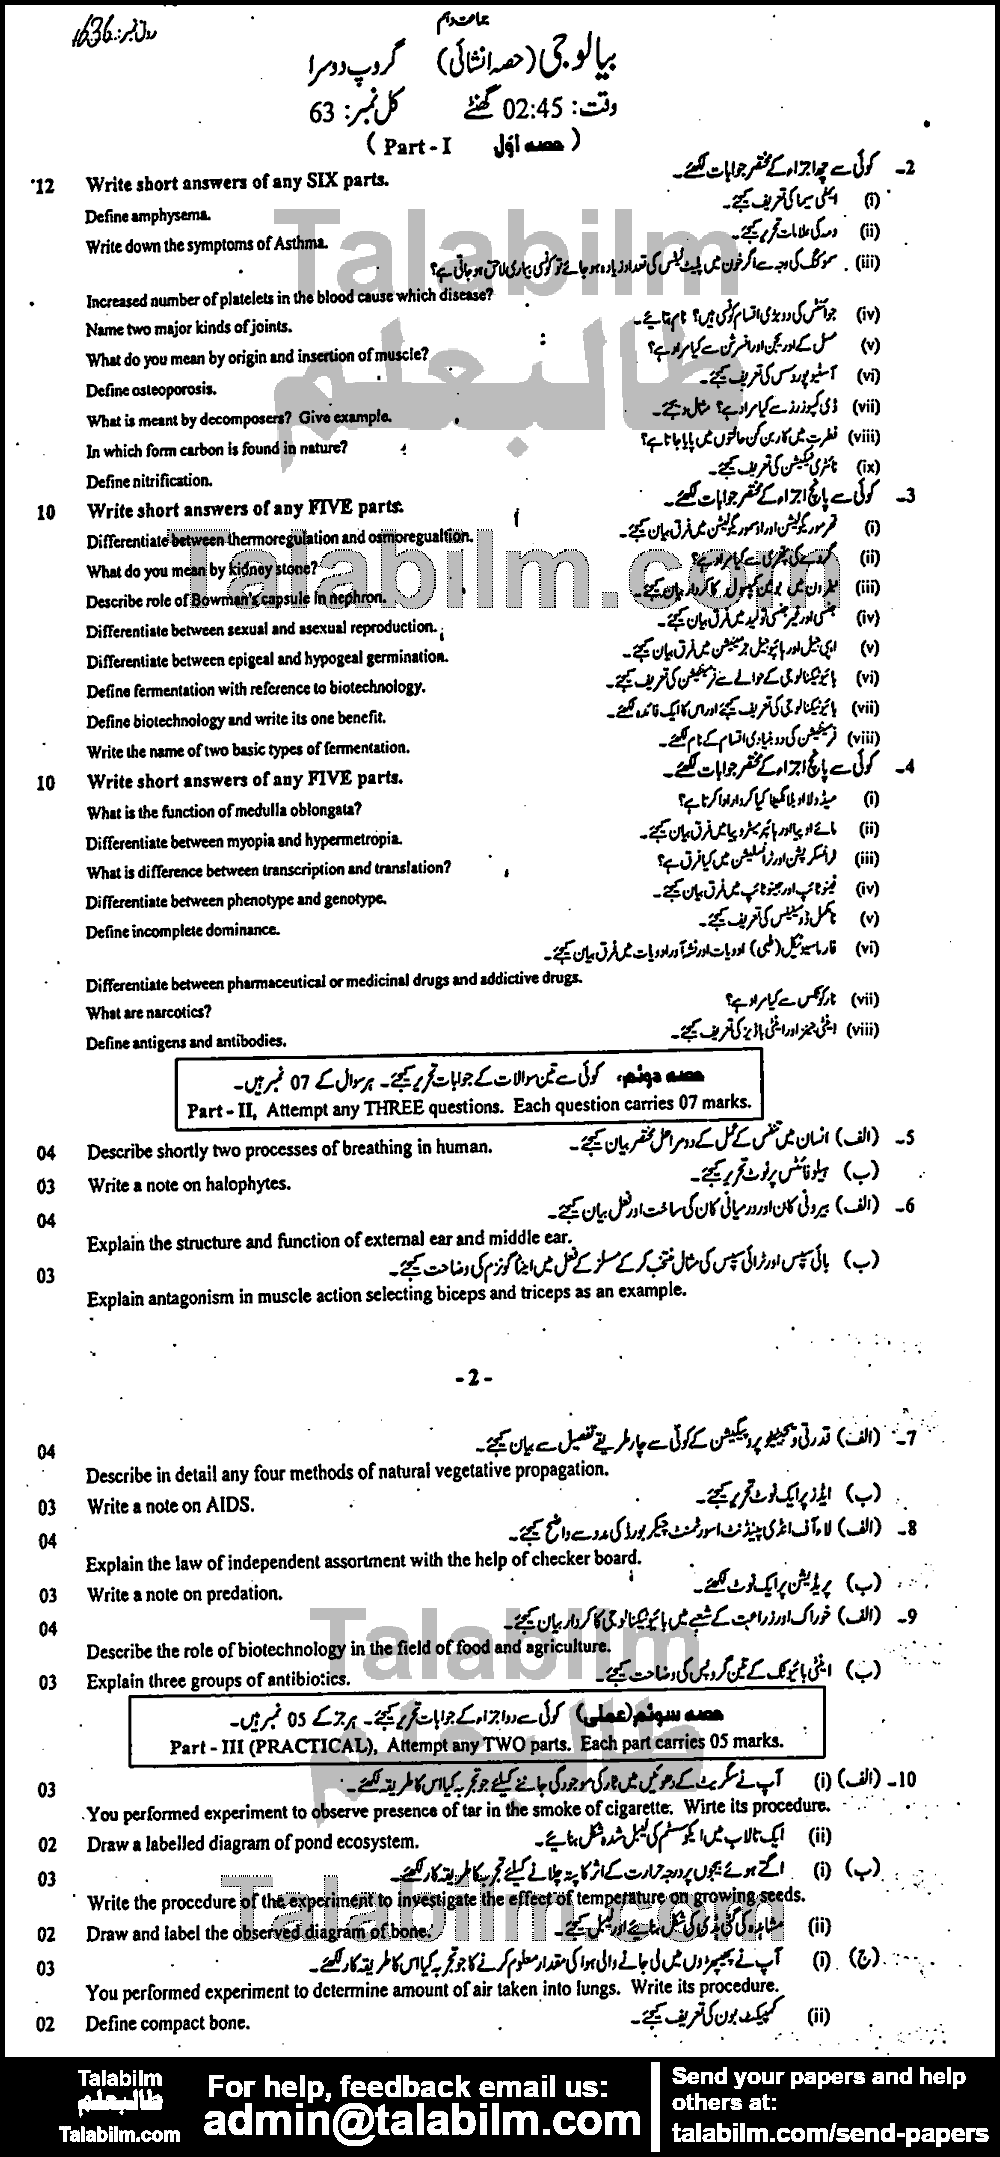 جماعت دہم
رول نمبر: 1636
بیالوجی (حصہ انشائی) گروپ دوسرا
وقت: 02:45 گھنٹے کل نمبر: 63
(Part - I حصہ اوّل)
2۔ کوئی سے چھ اجزاء کے مختصر جوابات لکھئے۔
12 Write short answers of any SIX parts.
(i) ایمفی سیما کی تعریف کیجئے۔
Define amphysema.
(ii) دمہ کی علامات تحریر کیجئے۔
Write down the symptoms of Asthma.
(iii) سموکنگ کی وجہ سے اگر خون میں پلیٹ لیٹس کی تعداد زیادہ ہو جائے تو کونسی بیماری لاحق ہو جاتی ہے؟
Increased number of platelets in the blood cause which disease?
(iv) جوائنٹس کی دو بڑی اقسام کونسی ہیں؟ نام بتائیے۔
Name two major kinds of joints.
(v) مسل کے اوریجن اور انسرشن سے کیا مراد ہے؟
What do you mean by origin and insertion of muscle?
(vi) آسٹیوپوروسس کی تعریف کیجئے۔
Define osteoporosis.
(vii) ڈی کمپوزرز سے کیا مراد ہے؟ مثال دیجئے۔
What is meant by decomposers? Give example.
(viii) فطرت میں کاربن کن حالتوں میں پایا جاتا ہے؟
In which form carbon is found in nature?
(ix) نائٹری فیکیشن کی تعریف کیجئے۔
Define nitrification.
3۔ کوئی سے پانچ اجزاء کے مختصر جوابات لکھئے۔
10 Write short answers of any FIVE parts.
(i) تھرموریگولیشن اور اوسموریگولیشن میں فرق بیان کیجئے۔
Differentiate between thermoregulation and osmoregualtion.
(ii) گردے کی پتھری سے کیا مراد ہے؟
What do you mean by kidney stone?
(iii) نیفرون میں بومین کیپسول کا کردار بیان کیجئے۔
Describe role of Bowman's capsule in nephron.
(iv) جنسی اور غیر جنسی تولید میں فرق بیان کیجئے۔
Differentiate between sexual and asexual reproduction.
(v) ایپی جیل اور ہائپوجیل جرمینیشن میں فرق بیان کیجئے۔
Differentiate between epigeal and hypogeal germination.
(vi) بائیوٹیکنالوجی کے حوالے سے فرمنٹیشن کی تعریف کیجئے۔
Define fermentation with reference to biotechnology.
(vii) بائیوٹیکنالوجی کی تعریف کیجئے اور اس کا ایک فائدہ لکھئے۔
Define biotechnology and write its one benefit.
(viii) فرمنٹیشن کی دو بنیادی اقسام کے نام لکھئے۔
Write the name of two basic types of fermentation.
4۔ کوئی سے پانچ اجزاء کے مختصر جوابات لکھئے۔
10 Write short answers of any FIVE parts.
(i) میڈولا اوبلانگیٹا کیا کردار ادا کرتا ہے؟
What is the function of medulla oblongata?
(ii) مائے اوپیا اور ہائپرمیٹروپیا میں فرق بیان کیجئے۔
Differentiate between myopia and hypermetropia.
(iii) ٹرانسکرپشن اور ٹرانسلیشن میں کیا فرق ہے؟
What is difference between transcription and translation?
(iv) فینوٹائپ اور جینوٹائپ میں فرق بیان کیجئے۔
Differentiate between phenotype and genotype.
(v) نامکمل ڈومیننس کی تعریف کیجئے۔
Define incomplete dominance.
(vi) فارماسیوٹیکل (طبی) ادویات اور نشہ آور ادویات میں فرق بیان کیجئے۔
Differentiate between pharmaceutical or medicinal drugs and addictive drugs.
(vii) نارکوٹکس سے کیا مراد ہے؟
What are narcotics?
(viii) اینٹی جنز اور اینٹی باڈیز کی تعریف کیجئے۔
Define antigens and antibodies.
حصہ دوئم، کوئی سے تین سوالات کے جوابات تحریر کیجئے۔ ہر سوال کے 07 نمبر ہیں۔
Part - II, Attempt any THREE questions. Each question carries 07 marks.
5۔ (الف) انسان میں تنفس کے عمل کے دو مراحل مختصر بیان کیجئے۔
04 Describe shortly two processes of breathing in human.
(ب) ہیلوفائٹس پر نوٹ تحریر کیجئے۔
03 Write a note on halophytes.
6۔ (الف) بیرونی کان اور درمیانی کان کی ساخت اور فعل بیان کیجئے۔
04
Explain the structure and function of external ear and middle ear.
(ب) بائی سیپس اور ٹرائی سیپس کی مثال منتخب کر کے مسلز کے فعل میں اینٹاگونزم کی وضاحت کیجئے۔
03
Explain antagonism in muscle action selecting biceps and triceps as an example.
- 2 -
7۔ (الف) قدرتی ویجیٹیٹو پروپیگیشن کے کوئی سے چار طریقے تفصیل سے بیان کیجئے۔
04
Describe in detail any four methods of natural vegetative propagation.
(ب) ایڈز پر ایک نوٹ تحریر کیجئے۔
03 Write a note on AIDS.
8۔ (الف) لاء آف انڈی پینڈنٹ اسورٹمنٹ چیکر بورڈ کی مدد سے واضح کیجئے۔
04
Explain the law of independent assortment with the help of checker board.
(ب) پریڈیشن پر ایک نوٹ لکھئے۔
03 Write a note on predation.
9۔ (الف) خوراک اور زراعت کے شعبے میں بائیوٹیکنالوجی کا کردار بیان کیجئے۔
04
Describe the role of biotechnology in the field of food and agriculture.
(ب) اینٹی بائیوٹک کے تین گروپس کی وضاحت کیجئے۔
03 Explain three groups of antibiotics.
حصہ سوئم (عملی) کوئی سے دو اجزاء کے جوابات تحریر کیجئے۔ ہر جز کے 05 نمبر ہیں۔
Part - III (PRACTICAL), Attempt any TWO parts. Each part carries 05 marks.
10۔ (الف) (i) آپ نے سگریٹ کے دھوئیں میں تار کی موجودگی جاننے کیلئے جو تجربہ کیا اس کا طریقہ لکھئے۔
03
You performed experiment to observe presence of tar in the smoke of cigarette. Wirte its procedure.
(ii) ایک تالاب میں ایکوسسٹم کی لیبل شدہ شکل بنائیے۔
02 Draw a labelled diagram of pond ecosystem.
(ب) (i) اگتے ہوئے بیجوں پر درجہ حرارت کے اثر کا پتہ چلانے کیلئے تجربے کا طریقہ کار لکھئے۔
03
Write the procedure of the experiment to investigate the effect of temperature on growing seeds.
(ii) مشاہدہ کی گئی ہڈی کی شکل بنائیے اور لیبل کیجئے۔
02 Draw and label the observed diagram of bone.
(ج) (i) آپ نے پھیپھڑوں میں لی جانے والی ہوا کی مقدار معلوم کرنے کا جو تجربہ کیا اس کا طریقہ کار لکھئے۔
03
You performed experiment to determine amount of air taken into lungs. Write its procedure.
(ii) کمپیکٹ بون کی تعریف کیجئے۔
02 Define compact bone.
Talabilm
طالبعلم
Talabilm.com
Talabilm
طالبعلم
Talabilm.com
Talabilm
طالبعلم
Talabilm.com
For help, feedback email us:
admin@talabilm.com
Send your papers and help
others at:
talabilm.com/send-papers